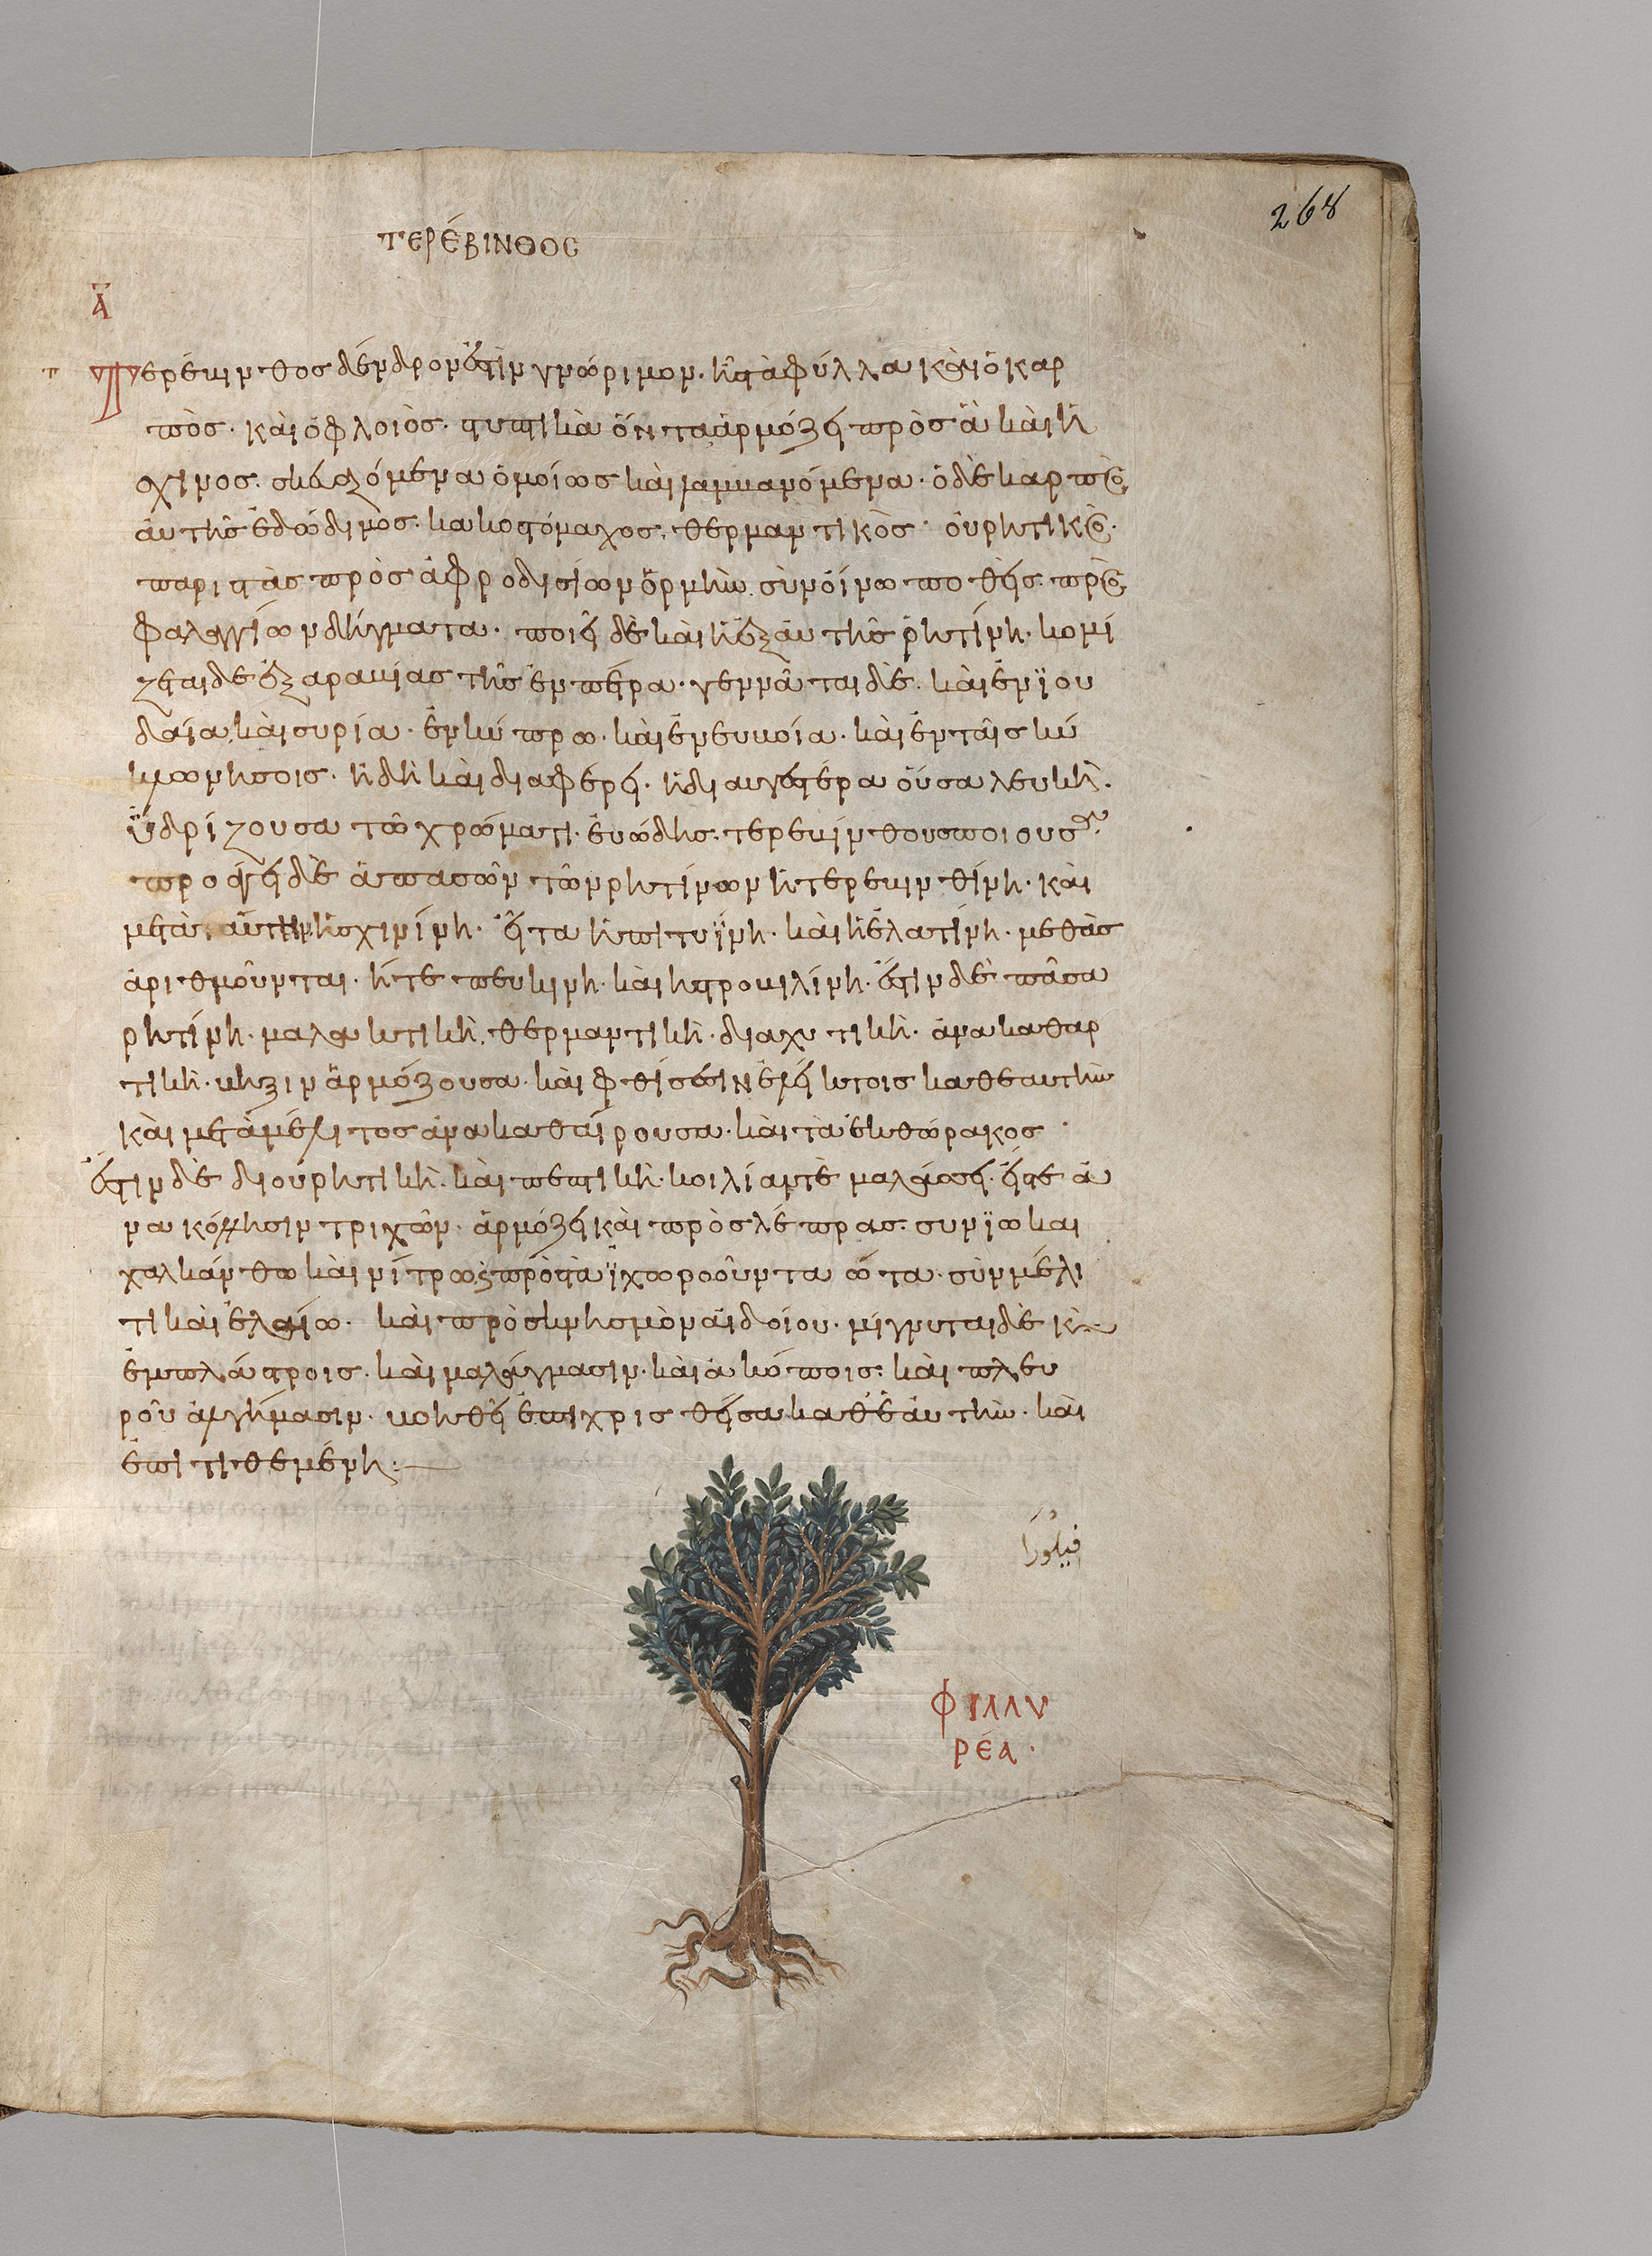 268
τερέβινθος
ᾱ
Τερέβινθος δένδρον ἐστὶν γνώριμον· ἧς τὰ φύλλα καὶ ὁ καρ
πὸς· καὶ ὁ φλοιὸς· στυπτικὰ ὄντα ἁρμόζει πρὸς ἃ καὶ ἡ
σχίνος· σκευαζόμενα ὁμοίως καὶ λαμβανόμενα· ὁ δὲ καρπὸς
ἀυτῆς ἐδώδιμὸς· κακοστόμαχος· θερμαντικὸς· ὀυρητικὸς·
παριστὰς πρὸς ἀφροδισίων ὅρμὴν· σὺν οἴνω ποθεὶς· πρὸς
φαλαγγίων δήγματα· ποιεῖ δὲ καὶ ἡ ἐξ ἀυτῆς ῥητίνη· κομί
ζεται δὲ ἐξ αραβίας τῆς ἐν πέτρα· γεννᾶται δὲ· καὶ ἐν ϊου
δαία καὶ συρία· ἐν κύπρω· καὶ ἐν λευκοία· καὶ ἐν ταῖς κύ
κλω νησοις· ἣ δὴ καὶ διαφέρει· ἡ διαυγεστέρα οὖσα λευκὴ·
ϋελρίζουσα τῶ χρώματι· ἐυώδης· τερεβίνθου
προάγει δὲ ἁπασῶν τῶν ρητίνων ἡ τερεβινθίνη· καὶ
μετὰ αὐτὴν ἡ σχινίνη· εἶτα ἡ πιτυΐνη· καὶ ἡ ἐλατίνη· μεθὰς
ἀριθμοῦνται· ἥτε πευκινη· καὶ ἡ στροβιλίνη· ἔστιν δὲ πᾶσα
ρητίνη· μαλακτικὴ· θερμαντικὴ· διαχυτικὴ· ἀνακαθαρ
τικὴ· βηξιν ἁρμόζουσα· καὶ φθίσεσιν ἐν ἐκλεικτοις καθεαυτὴν
καὶ μετὰ μέλιτος ἀνακαθαίρουσα· καὶ τὰ ἐκ θώρακος
ἔστιν δὲ διουρητικὴ· καὶ πεπτικὴ· κοιλίαν τὲ μαλάσσει· εἴστε ἀ
νακόλλησιν τριχῶν· ἁρμόζει καὶ πρὸς λέπρας· συν ϊω και
χαλκάνθω καὶ νίτρω· πρόστὰ ϊχωροοῦντα ὦτα· σὺν μέλι
τι καὶ ἐλαίω· καὶ πρὸς κνησμὸν αἰδοίου· μίγνυται δὲ κὰι
ἐμπλάστροις· καὶ μαλάγμασιν· καὶ ἀκόποις· καὶ πλευ
ροῦ ἀλγήμασιν· βοηθεῖ ἐπιχρισθεῖσα καθ ἑαυτὴν· καὶ
ἐπιτιθεμένη:
فيلورا
φιλλυ
ρέα·